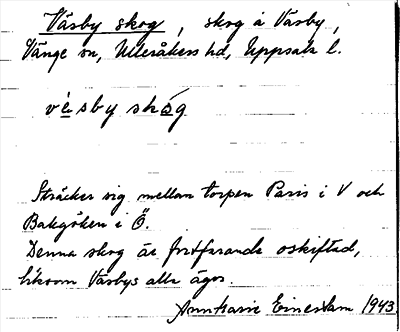 Väsby skog, skog å Väsby,
Vänge sn, Ulleråkers hd, Uppsala l.
vèsby skóg
Sträcker sig mellan torpen Paris i V och
Bakgöken i Ö.
Denna skog är fortfarande oskiftad,
liksom Väsbys alla ägor.
AnnMarie 1943